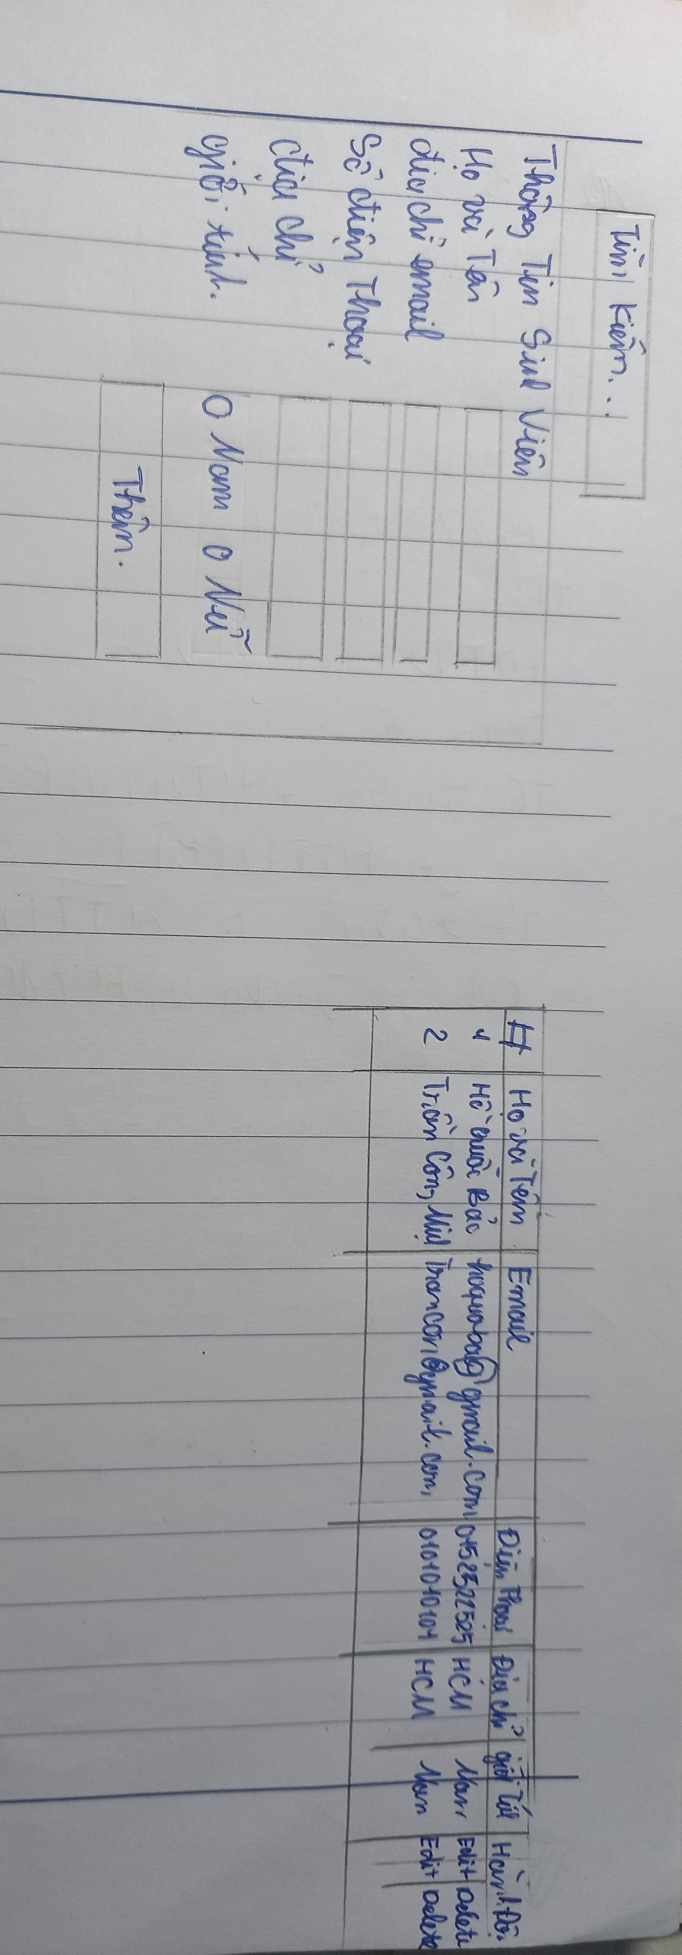 Tìm kiếm...
Thông Tin Sinh Viên
Họ và Tên
địa chỉ email
Số điện Thoại
địa chỉ
giới tính.
o Nam o Nữ
Thêm.
# Họ và Tên Email Điện Thoại Địa chỉ giới Tính Hành Độ.
1 Hồ Quốc Bảo hoquoba@gmail.com 0152522525 HCM Nam Edit Delete
2 Trần Công Minh Trancon@gmail.com 0101010101 HCM Nam Edit Delete